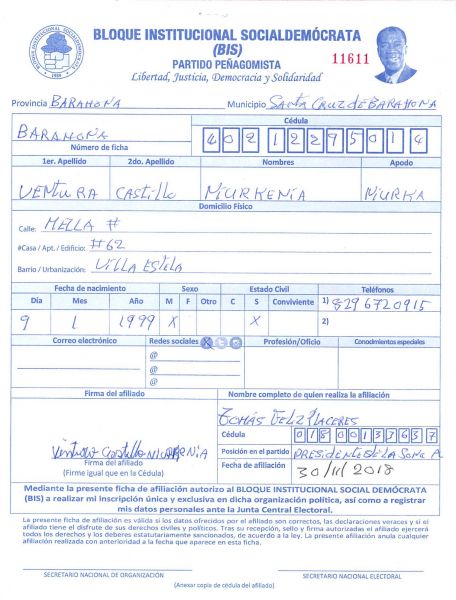 BLOQUE INSTITUCIONAL SOCIALDEMÓCRATA
(BIS)
PARTIDO PEÑAGOMISTA
11611
Libertad, Justicia, Democracia y Solidaridad
Provincia BARAHONA Municipio SANTA CRUZ DE BARAHONA
BARAHONA
Número de ficha
Cédula
40212295014
1er. Apellido 2do. Apellido Nombres Apodo
VENTURA CASTILLO NIURKENIA NIURKA
Domicilio Físico
Calle: MELLA #
#Casa / Apt. / Edificio: #62
Barrio / Urbanización: VILLA ESTELA
Fecha de nacimiento Sexo Estado Civil Teléfonos
Día Mes Año M F Otro C S Conviviente 1) 8296720915
9 1 1999 X X 2)
Correo electrónico Redes sociales Profesión/Oficio Conocimientos especiales
@
@
@
Firma del afiliado Nombre completo de quien realiza la afiliación
TOMÁS FELIZ PLACERES
Cédula 01800137637
Posición en el partido PRESIDENTE DE LA
Fecha de afiliación 30/11/2018
Firma del afiliado
(Firme igual que en la Cédula)
Mediante la presente ficha de afiliación autorizo al BLOQUE INSTITUCIONAL SOCIAL DEMÓCRATA
(BIS) a realizar mi inscripción única y exclusiva en dicha organización política, así como a registrar
mis datos personales ante la Junta Central Electoral.
La presente ficha de afiliación es válida si los datos ofrecidos por el afiliado son correctos, las declaraciones veraces y si el
afiliado tiene el disfrute de sus derechos civiles y políticos. Tras su recepción, sello y firma autorizados el afiliado ejercerá
todos los derechos y los deberes estatutariamente sancionados, de acuerdo a la ley. La presente afiliación anula cualquier
afiliación realizada con anterioridad a la fecha que aparece en esta ficha.
SECRETARIO NACIONAL DE ORGANIZACIÓN SECRETARIO NACIONAL ELECTORAL
(Anexar copia de cédula del afiliado)